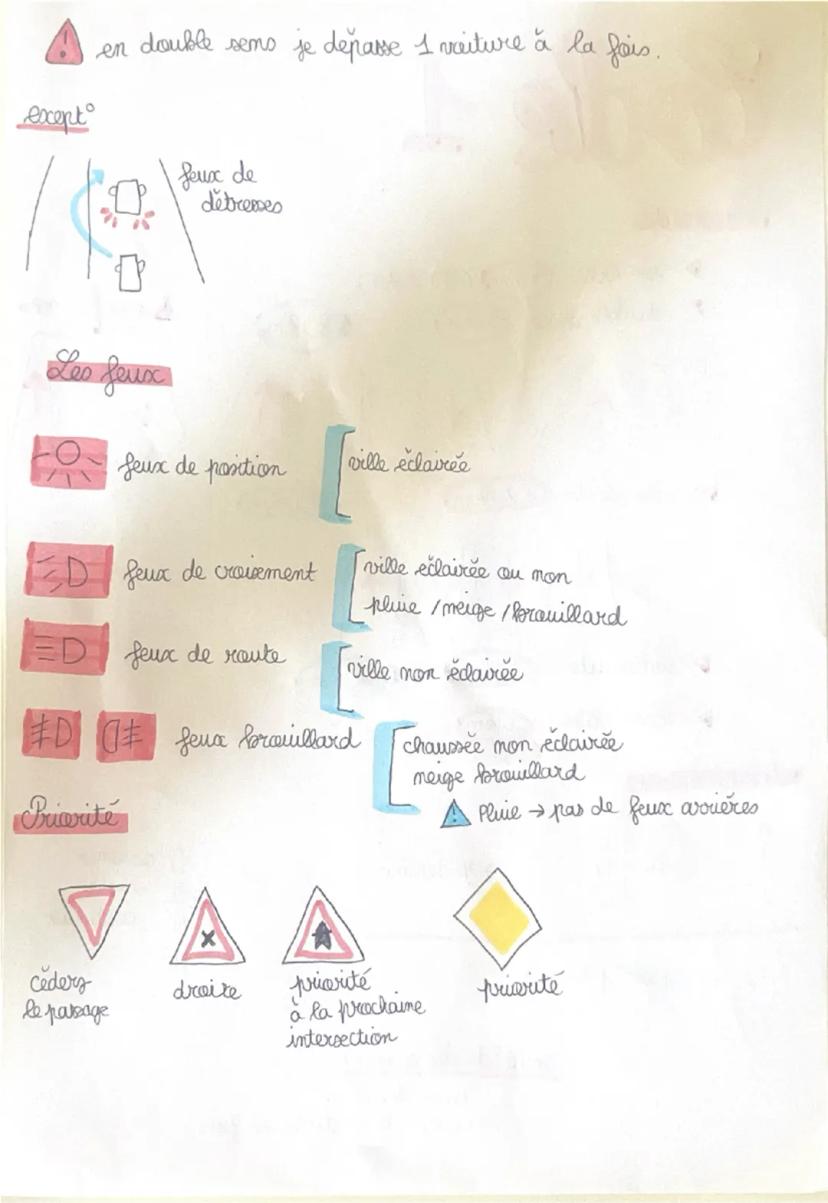 en double sens je dépasse 1 voiture à la fois.
except°
feux de
détresses
Les feux
feux de position
ville éclairée
feux de croisement
ville éclairée ou non
pluie / neige / brouillard
feux de route
ville non éclairée
feux brouillard
chaussée non éclairée
neige brouillard
Pluie → pas de feux arrières
Priorité
cèderz
le passage
droite
priorité
à la prochaine
intersection
priorité